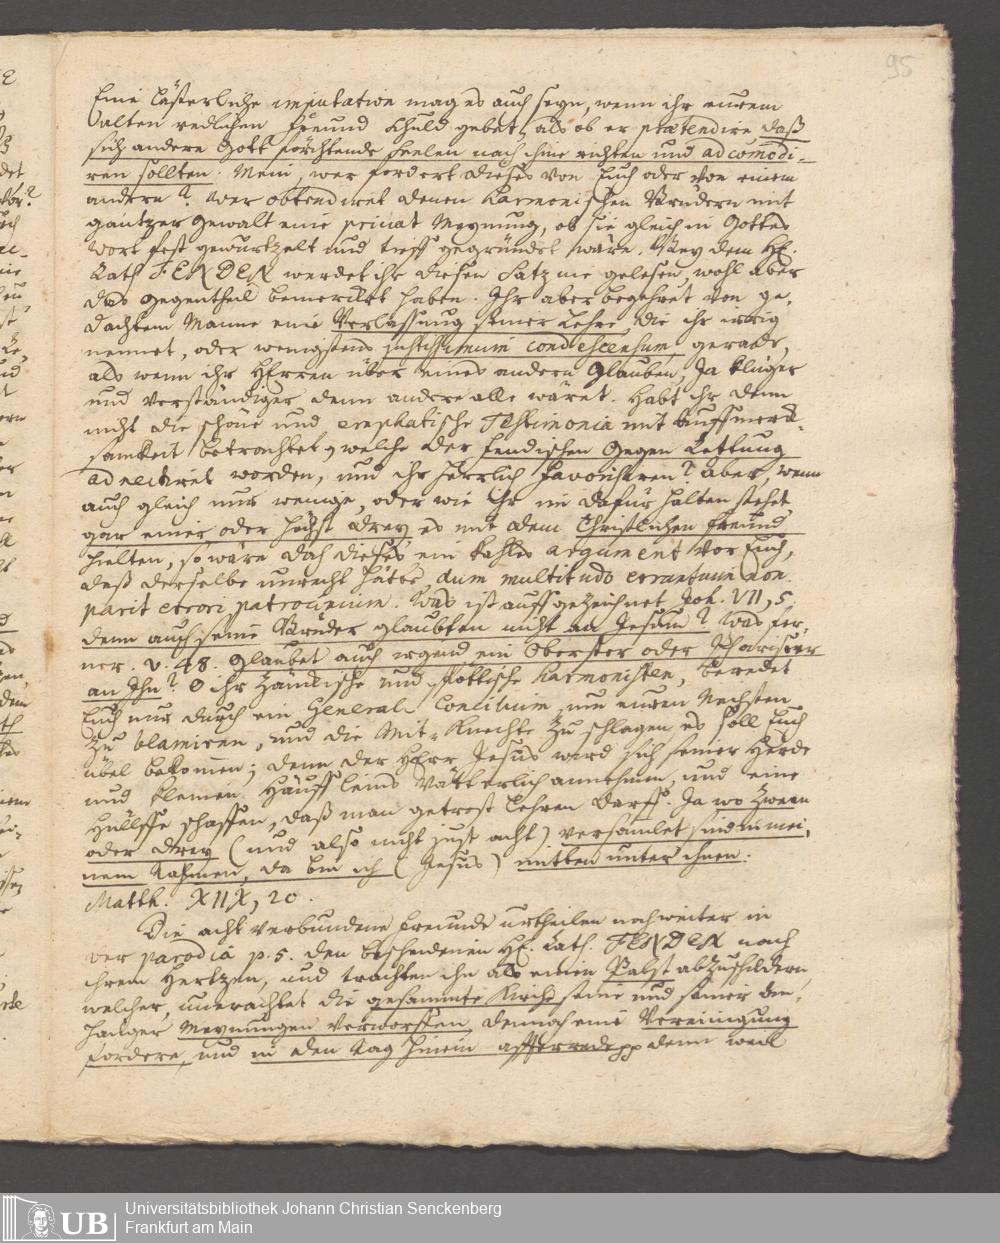 95
Eine lästerliche imputation mag es auch seyn, wenn ihr eurem
alten redlichen Freund schuld gebet, als ob er prætendire daß
sich andere Gott förchtende Seelen nach ihme richten und adcomodi-
ren sollten. Mein, wer fordert dieses von Euch oder von einem
andern? wer obtendiret denen Harmonischen Brüdern mit
gantzer Gewalt eine privat Meynung, ob sie gleich in Gottes
Wort fest gewurtzelt und tieff gegründet wäre. Bey dem H.
Rath FENDEN werdet ihr diesen Satz nie gelesen, wohl aber
das Gegentheil bemercket haben. Ihr aber begehret von ge-
dachtem Manne eine Verlassung seiner Lehre, die ihr irrig
nennet, oder wenigstens justissimum condescensum, gerade,
als wenn ihr Herren über eines andern Glauben, Ja klüger
und verständiger denn andere alle wäret. Habt ihr denn
nicht die schöne und emphatische Testimonia mit Auffmerck-
samkeit betrachtet, welche der Fendischen Gegen Rettung
adnectiret worden, und ihr herrlich favorisiren? Aber, wenn
auch gleich nur wenige, oder wie ihr im dafür halten stehet
gar einer oder höchst drey es mit dem Christlichen Freund
hielten, so wäre doch dieses ein kahles argument vor Euch,
daß derselbe unrecht hätte, dum multitudo errantium non
parit errori patrocinium. Was ist auffgezeichnet Joh. VII, 5.
denn auch seine Brüder glaubten nicht an Jesum? Was fer-
ner. v. 48. Glaubet auch irgend ein Oberster oder Pharisæer
an Ihn? O ihr zänckische und spöttische Harmonisten, beredet
Euch nur durch ein General-Concilium, um euren Nechsten
zu blamiren, und die Mit-Knechte zu schlagen, es soll Euch
übel bekommen; denn der Herr Jesus wird sich seiner Herde
und kleinen Häuffleins vätterlich annehmen, und eine
Hülffe schaffen, daß man getrost lehren darff. Ja wo zween
oder drey (und also nicht just acht) versamlet sind in mei-
nem Nahmen, da bin ich (Jesus) mitten unter ihnen:
Matth. XIIX, 20.
Die acht verbundene Freunde urtheilen noch weiter in
der parodia p. 5. den bescheidenen H. Rath. FENDEN nach
ihrem Hertzen, und trachten ihn als einen Pabst abzuschildern,
welcher, unerachtet die gesammte Kirche seine und seiner An-
hänger Meynungen verworffen, dennoch eine Vereinigung
fordere, und in den Tag hinein denn weil
Universitätsbibliothek Johann Christian Senckenberg
Frankfurt am Main
UB